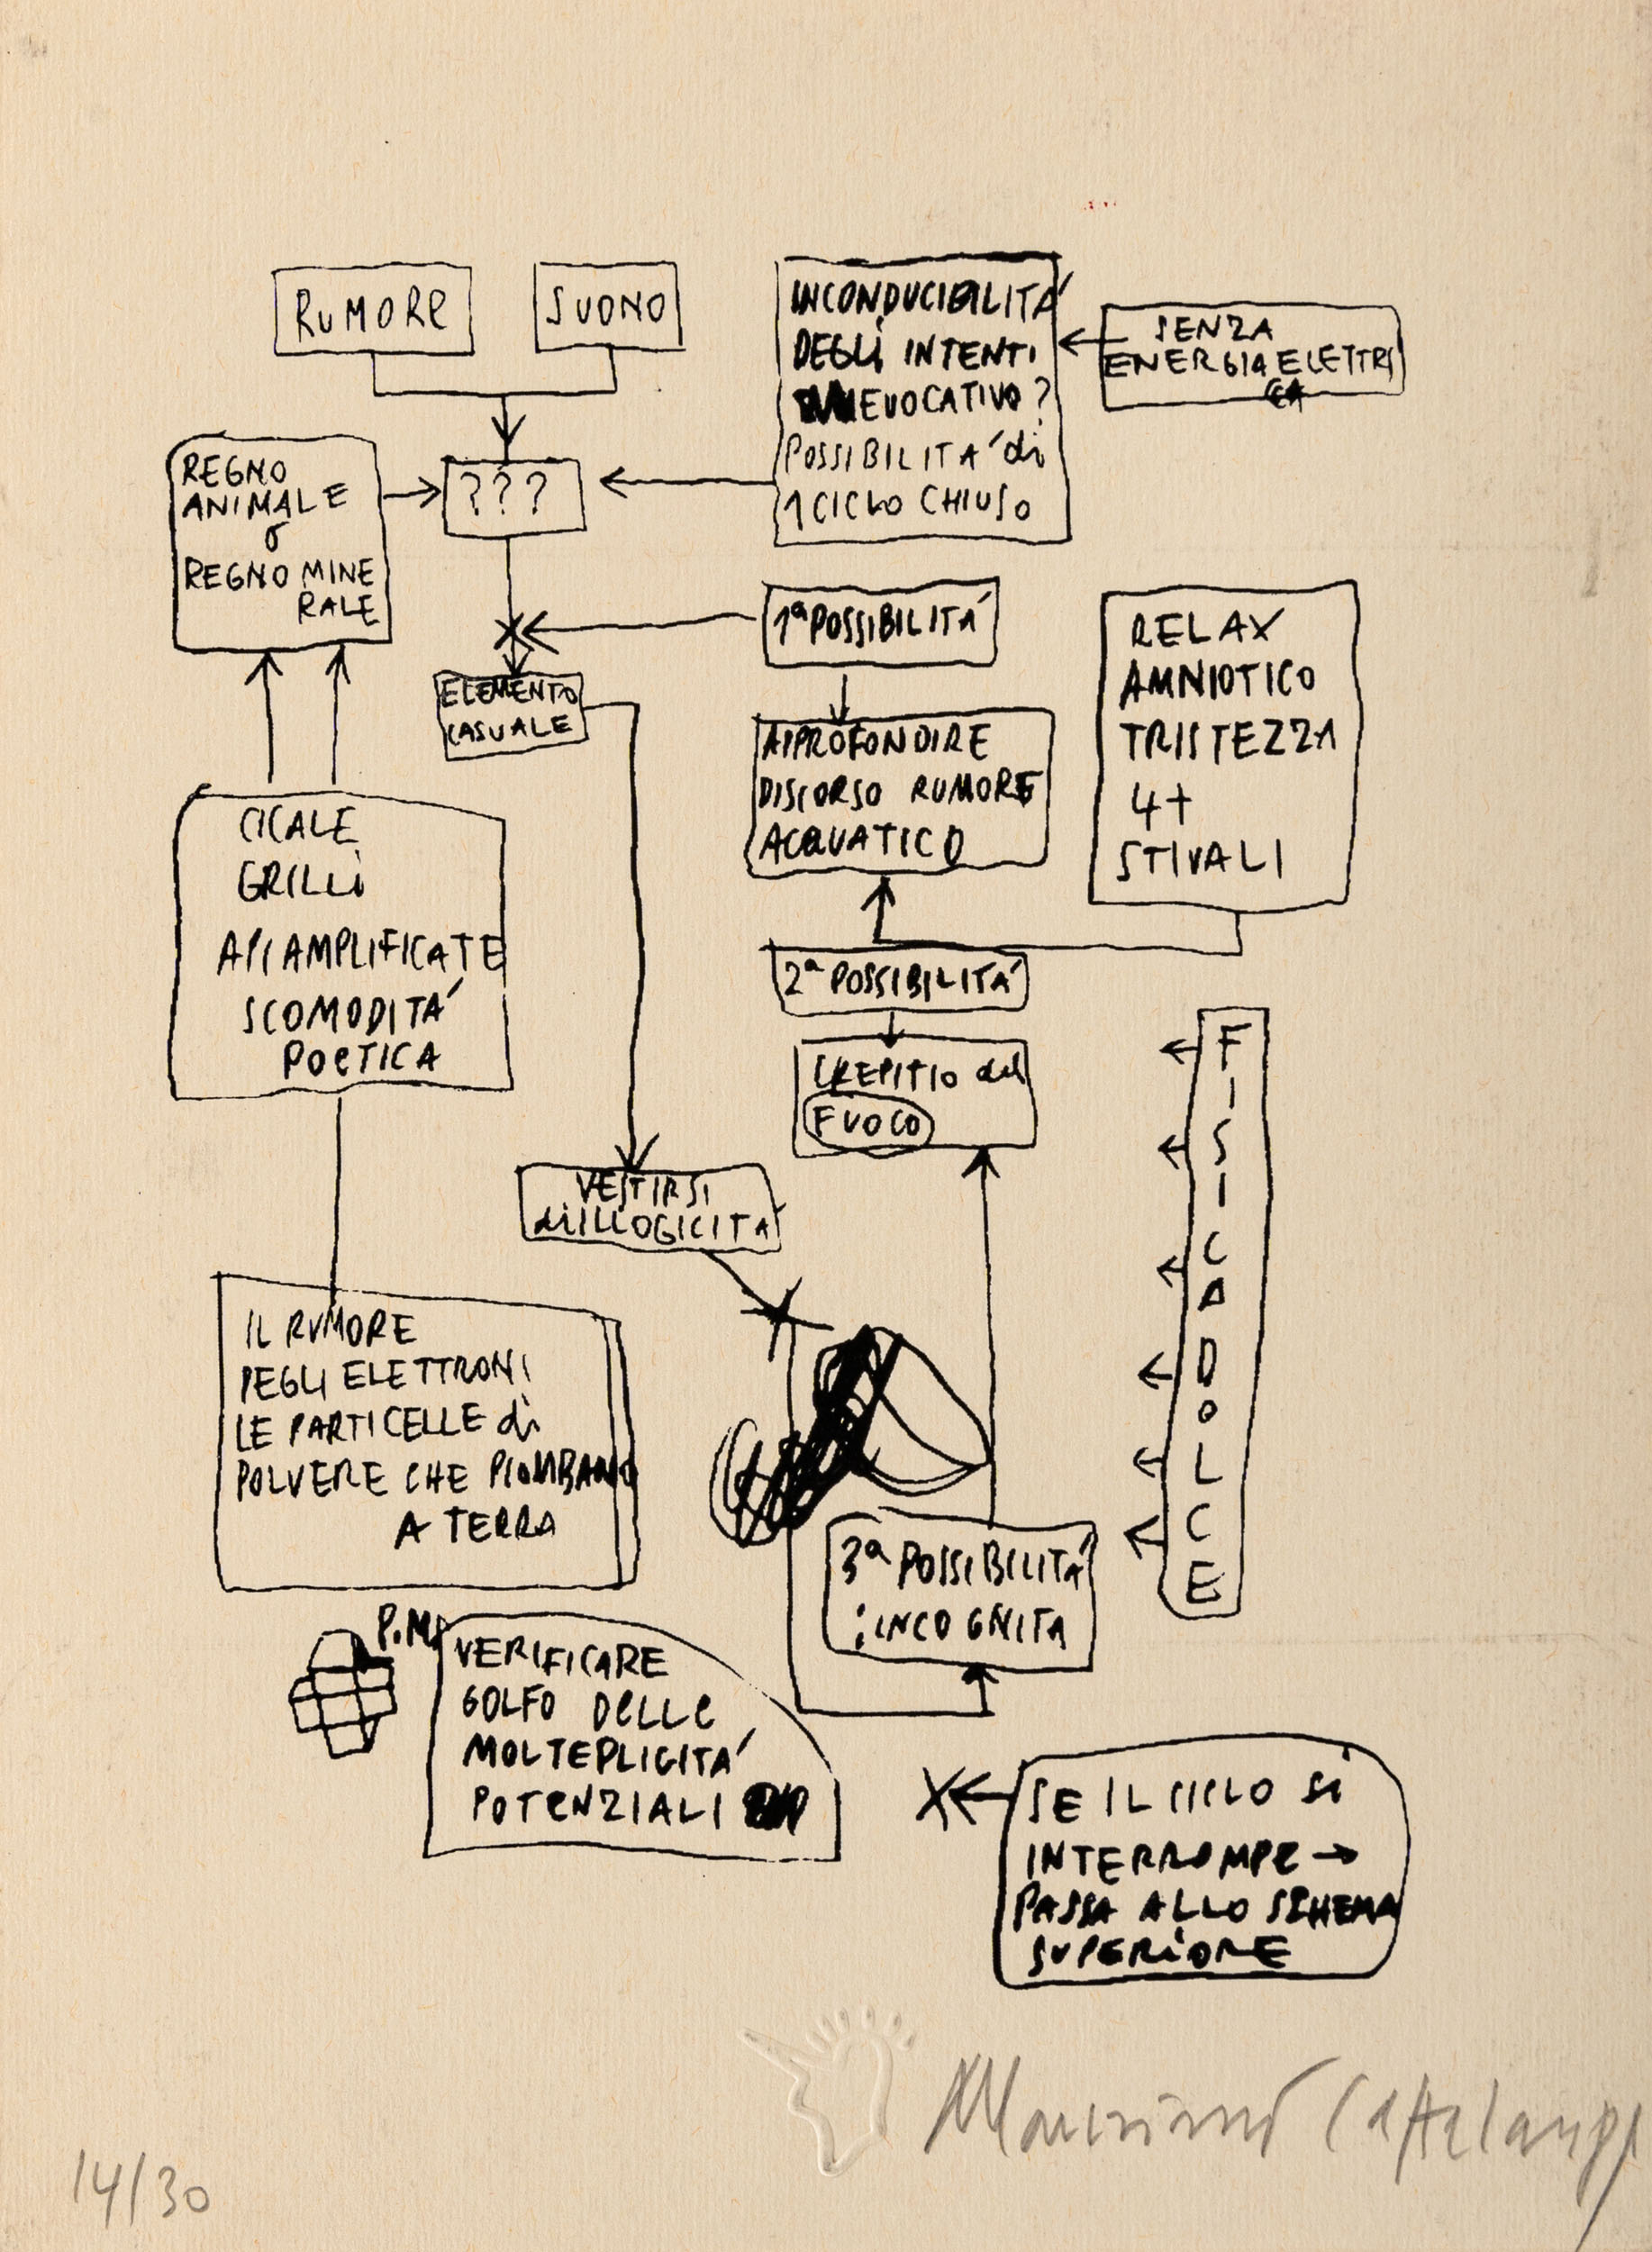 RUMORE
SUONO
INCONDUCIBILITÁ
DEGLI INTENTI
EVOCATIVO?
POSSIBILITÁ di
1 CICLO CHIUSO
SENZA
ENERGIA ELETTRI
CA
REGNO
ANIMALE
o
REGNO MINE
RALE
???
1ª POSSIBILITÁ
ELEMENTO
CASUALE
APPROFONDIRE
DISCORSO RUMORE
ACQUATICO
RELAX
AMNIOTICO
TRISTEZZA
4+
STIVALI
CICALE
GRILLI
API AMPLIFICATE
SCOMODITÁ
POETICA
2ª POSSIBILITÁ
CREPITIO del
FUOCO
FISICA DOLCE
VESTIRSI
di ILLOGICITÁ
IL RUMORE
DEGLI ELETTRONI
LE PARTICELLE di
POLVERE CHE PIOMBANO
A TERRA
3ª POSSIBILITÁ
: INCOGNITA
P.M.
VERIFICARE
GOLFO DELLE
MOLTEPLICITÁ
POTENZIALI
SE IL CICLO SI
INTERROMPE →
PASSA ALLO SCHEMA
SUPERIORE
14/30